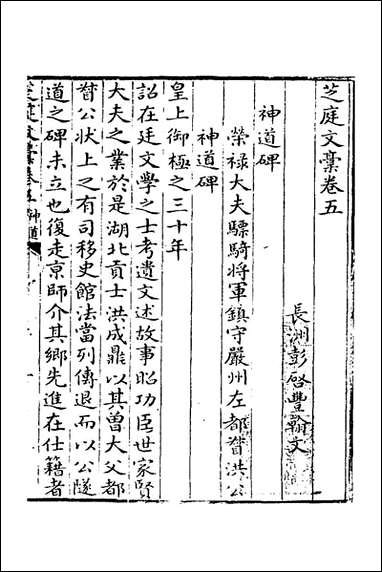 芝庭文稾卷五
長洲彭啓豐翰文
神道碑
榮禄大夫驃騎將軍鎮守嚴州左都督洪公
神道碑
皇上御極之三十年
詔在廷文學之士考遺文述故事昭功臣世家賢
大夫之業於是湖北貢士洪成鼎以其曽大父都
督公狀上之有司移史館法當列傳退而以公隧
道之碑未立也復走京師介其鄉先進在仕籍者
芝庭文稾卷五 神道